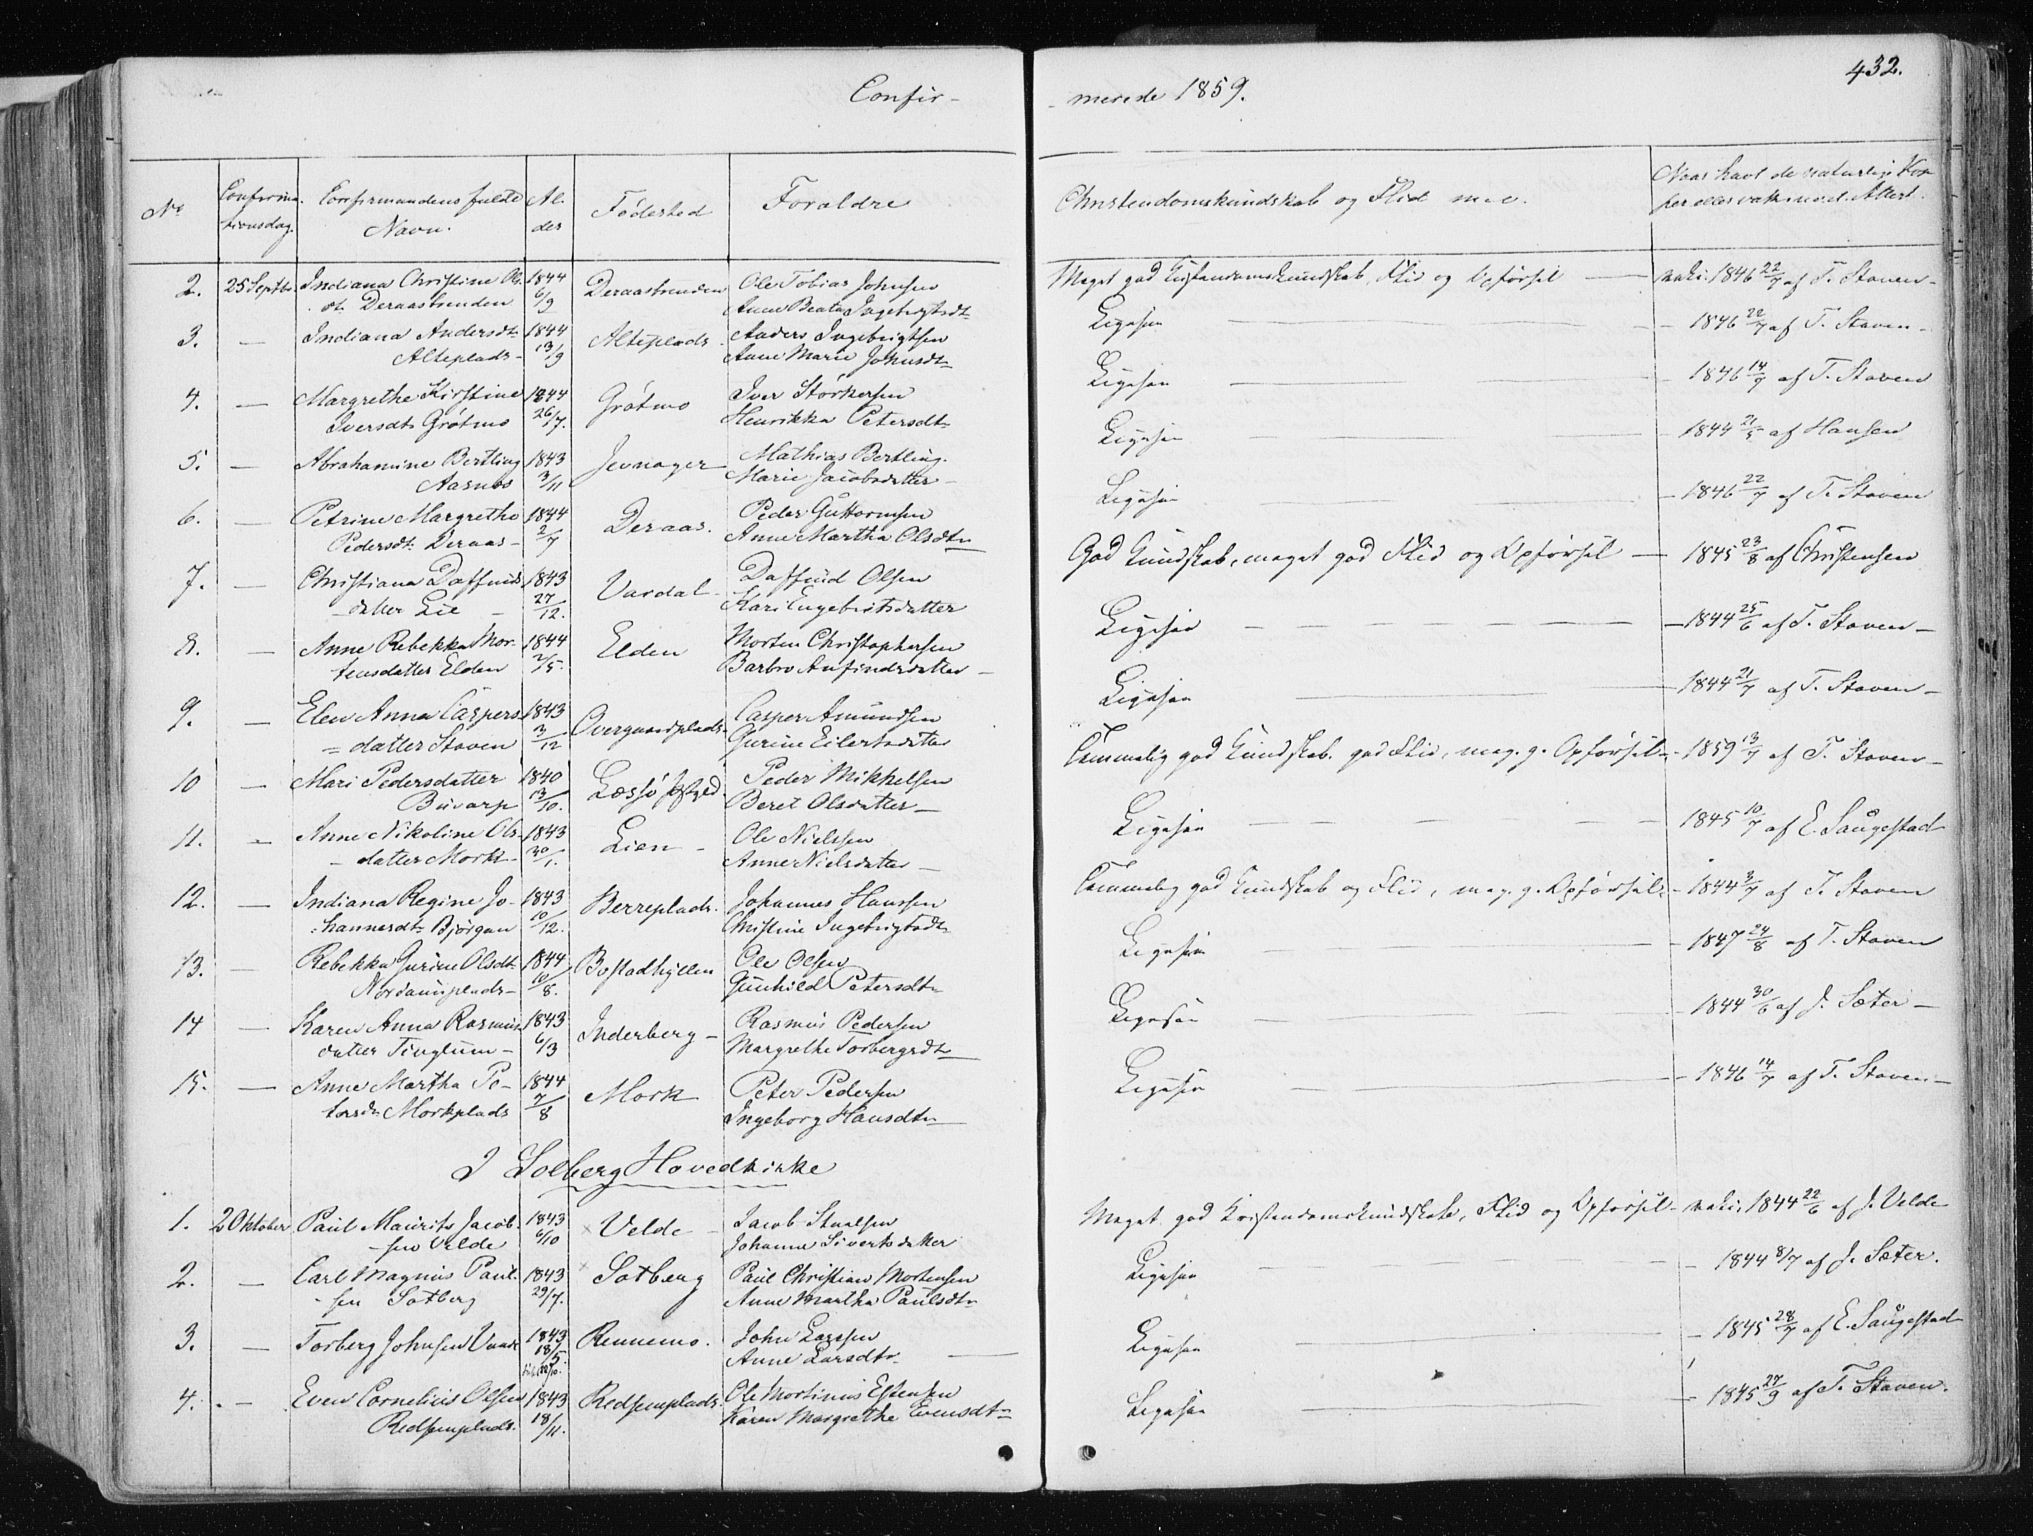 432.
Confir-
-merede 1859.
No
Confirma-
tionsdag.
Confirmandens fulde
Navn.
Al-
der
Fødested
Forældre
Christendomskundskab og Flid m.v.
Naar havt de naturlige Kop-
per eller vakc. med Attest.
2. 25 Septbr. Indiana Christine Ols- 1844 Deraasbrenden Ole Tobias Johnsen Meget god Kristendomskundskab, Flid og Opførsel — vakc. 1846 22/7 af T. Staven-
dt. Deraasbrenden 6/9 Anne Beata Ingebrigtsdt.
3. — Indiana Andersdt. 1844 Alteplads Anders Ingebrigtsen Ligesaa — 1846 22/7 af T. Staven-
Alteplads- 13/9 Anne Marie Johnsdt.
4. — Margrethe Kirstine 1844 Grötmo Iver Störkersen Ligesaa — 1846 14/7 af T. Staven
Iversdt. Grötmo 26/7. Henrikka Petersdt.
5. — Abrahamine Bertling 1843 Jevnager Mathias Bertling. Ligesaa — 1844 21/5 af Hansen
Aasnes 3/11 Marie Jacobsdatter
6. — Petrine Margrethe 1844 Deraas. Peder Guttormsen Ligesaa — 1846 22/7 af T. Staven
Pedersdt. Deraas- 2/7 Anne Martha Olsdt.
7. — Christiana Daffinds 1843 Vardal Daffind Olsen God Kundskab, meget god Flid og Opførsel — 1845 23/8 af Christensen
-datter Lie 27/12. Kari Engebretsdatter
8. — Anne Rebekka Mor- 1844 Elden Morten Christophersen Ligesaa — 1844 25/6 af T. Staven-
tensdatter Elden 2/5. Barbro Anfindsdatter
9. — Elen Anna Caspers- 1843 Overgaardplads Casper Asmundsen Ligesaa — 1844 21/7 af T. Staven-
=datter Staven 3/12 Gurine Eilertsdatter
10 — Mari Pedersdatter 1840 Peder Mikkelsen Temmelig god Kundskab. god Flid, meg. g. Opførsel - 1859 13/7 af T. Staven-
Buvarp 13/10. Beret Olsdatter-
11. — Anne Nikoline Ols- 1843 Lien- Ole Nielssen Ligesaa — 1845 10/7 af E. Saugestad
-datter Mork- 30/1. Anne Nielsdatter
12. — Indiana Regine Jo- 1843 Berreplads. Johannes Hanssen Temmelig god Kundskab og Flid, meg. g. Opførsel - 1844 3/7 af T. Staven
-hannesdt. Bjørgan 10/12. Christine Ingebrigtsdt.
13. — Rebekka Gurine Olsdt. 1844 Bostadhyllen Ole Olsen Ligesaa — 1847 24/8 af T. Staven
10/8. Gunhild Petersdt.
14 — Karen Anna Rasmus- 1843 Inderberg- Rasmus Pedersen Ligesaa — 1844 30/6 af J. Sæter-
datter Tinglum- 6/3 Margrethe Torbergsdt.
15. — Anne Martha Pe- 1844 Mork Peter Pedersen Ligesaa — 1846 14/7 af T. Staven-
tersdt. Morkplads 7/8 Ingeborg Hansdt.
I Solberg Hovedkirke
1. 2 Oktober Paul Maurits Jacob- 1843 Velde Jacob Staalsen Meget god Kristendomskundskab, Flid og Opførsel - vakc. 1844 22/6 af J. Velde
-sen Velde 6/10 Johanna Sivertsdatter
2. — Carl Magnus Paul- 1843 Satberg Paul Christian Mortensen Ligesaa — 1844 8/7 af J. Sæter.
-sen Satberg 29/7. Anne Martha Paulsdt.
3. — Torberg Johnsen 1843 Rennemo. John Larssen Ligesaa — 1845 28/7 af E. Saugestad
18/5. Anne Larsdtr.
4. — Even Cornelius Olsen 1843 Redsemplads. Ole Martinus Estensen Ligesaa — 1845 27/9 af T. Staven.
Redsemplads. 18/11. Karen Margrethe Evensdt.